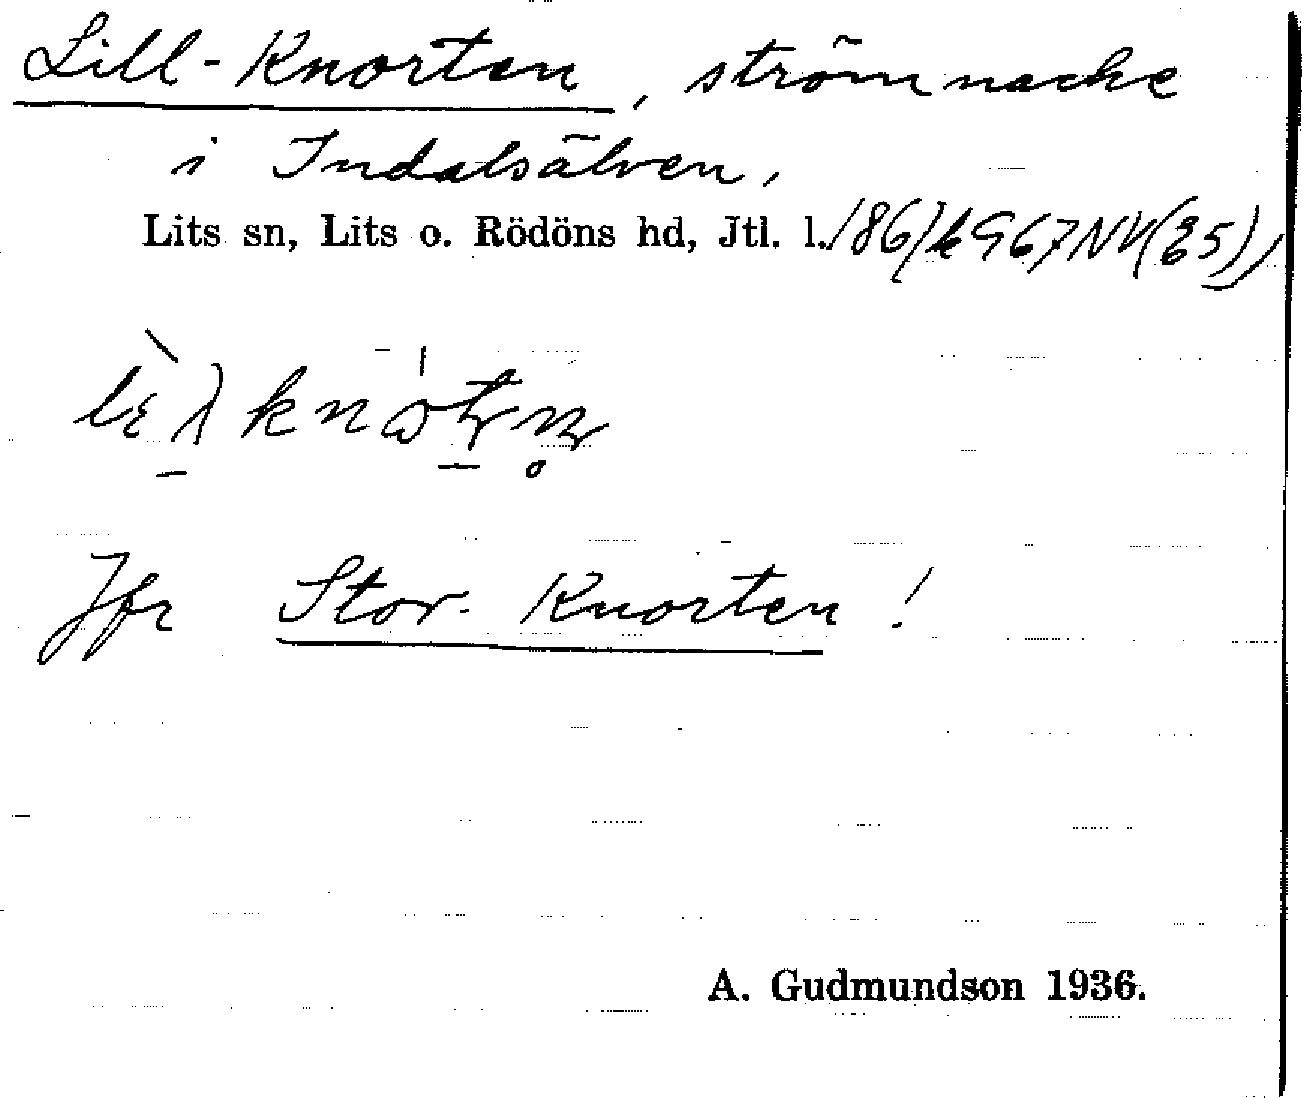 Lill-Knorten, strömnacke
i Indalsälven,
Lits sn, Lits o. Rödöns hd, Jtl. l.
Jfr Stor-Knorten!
A. Gudmundson 1936.